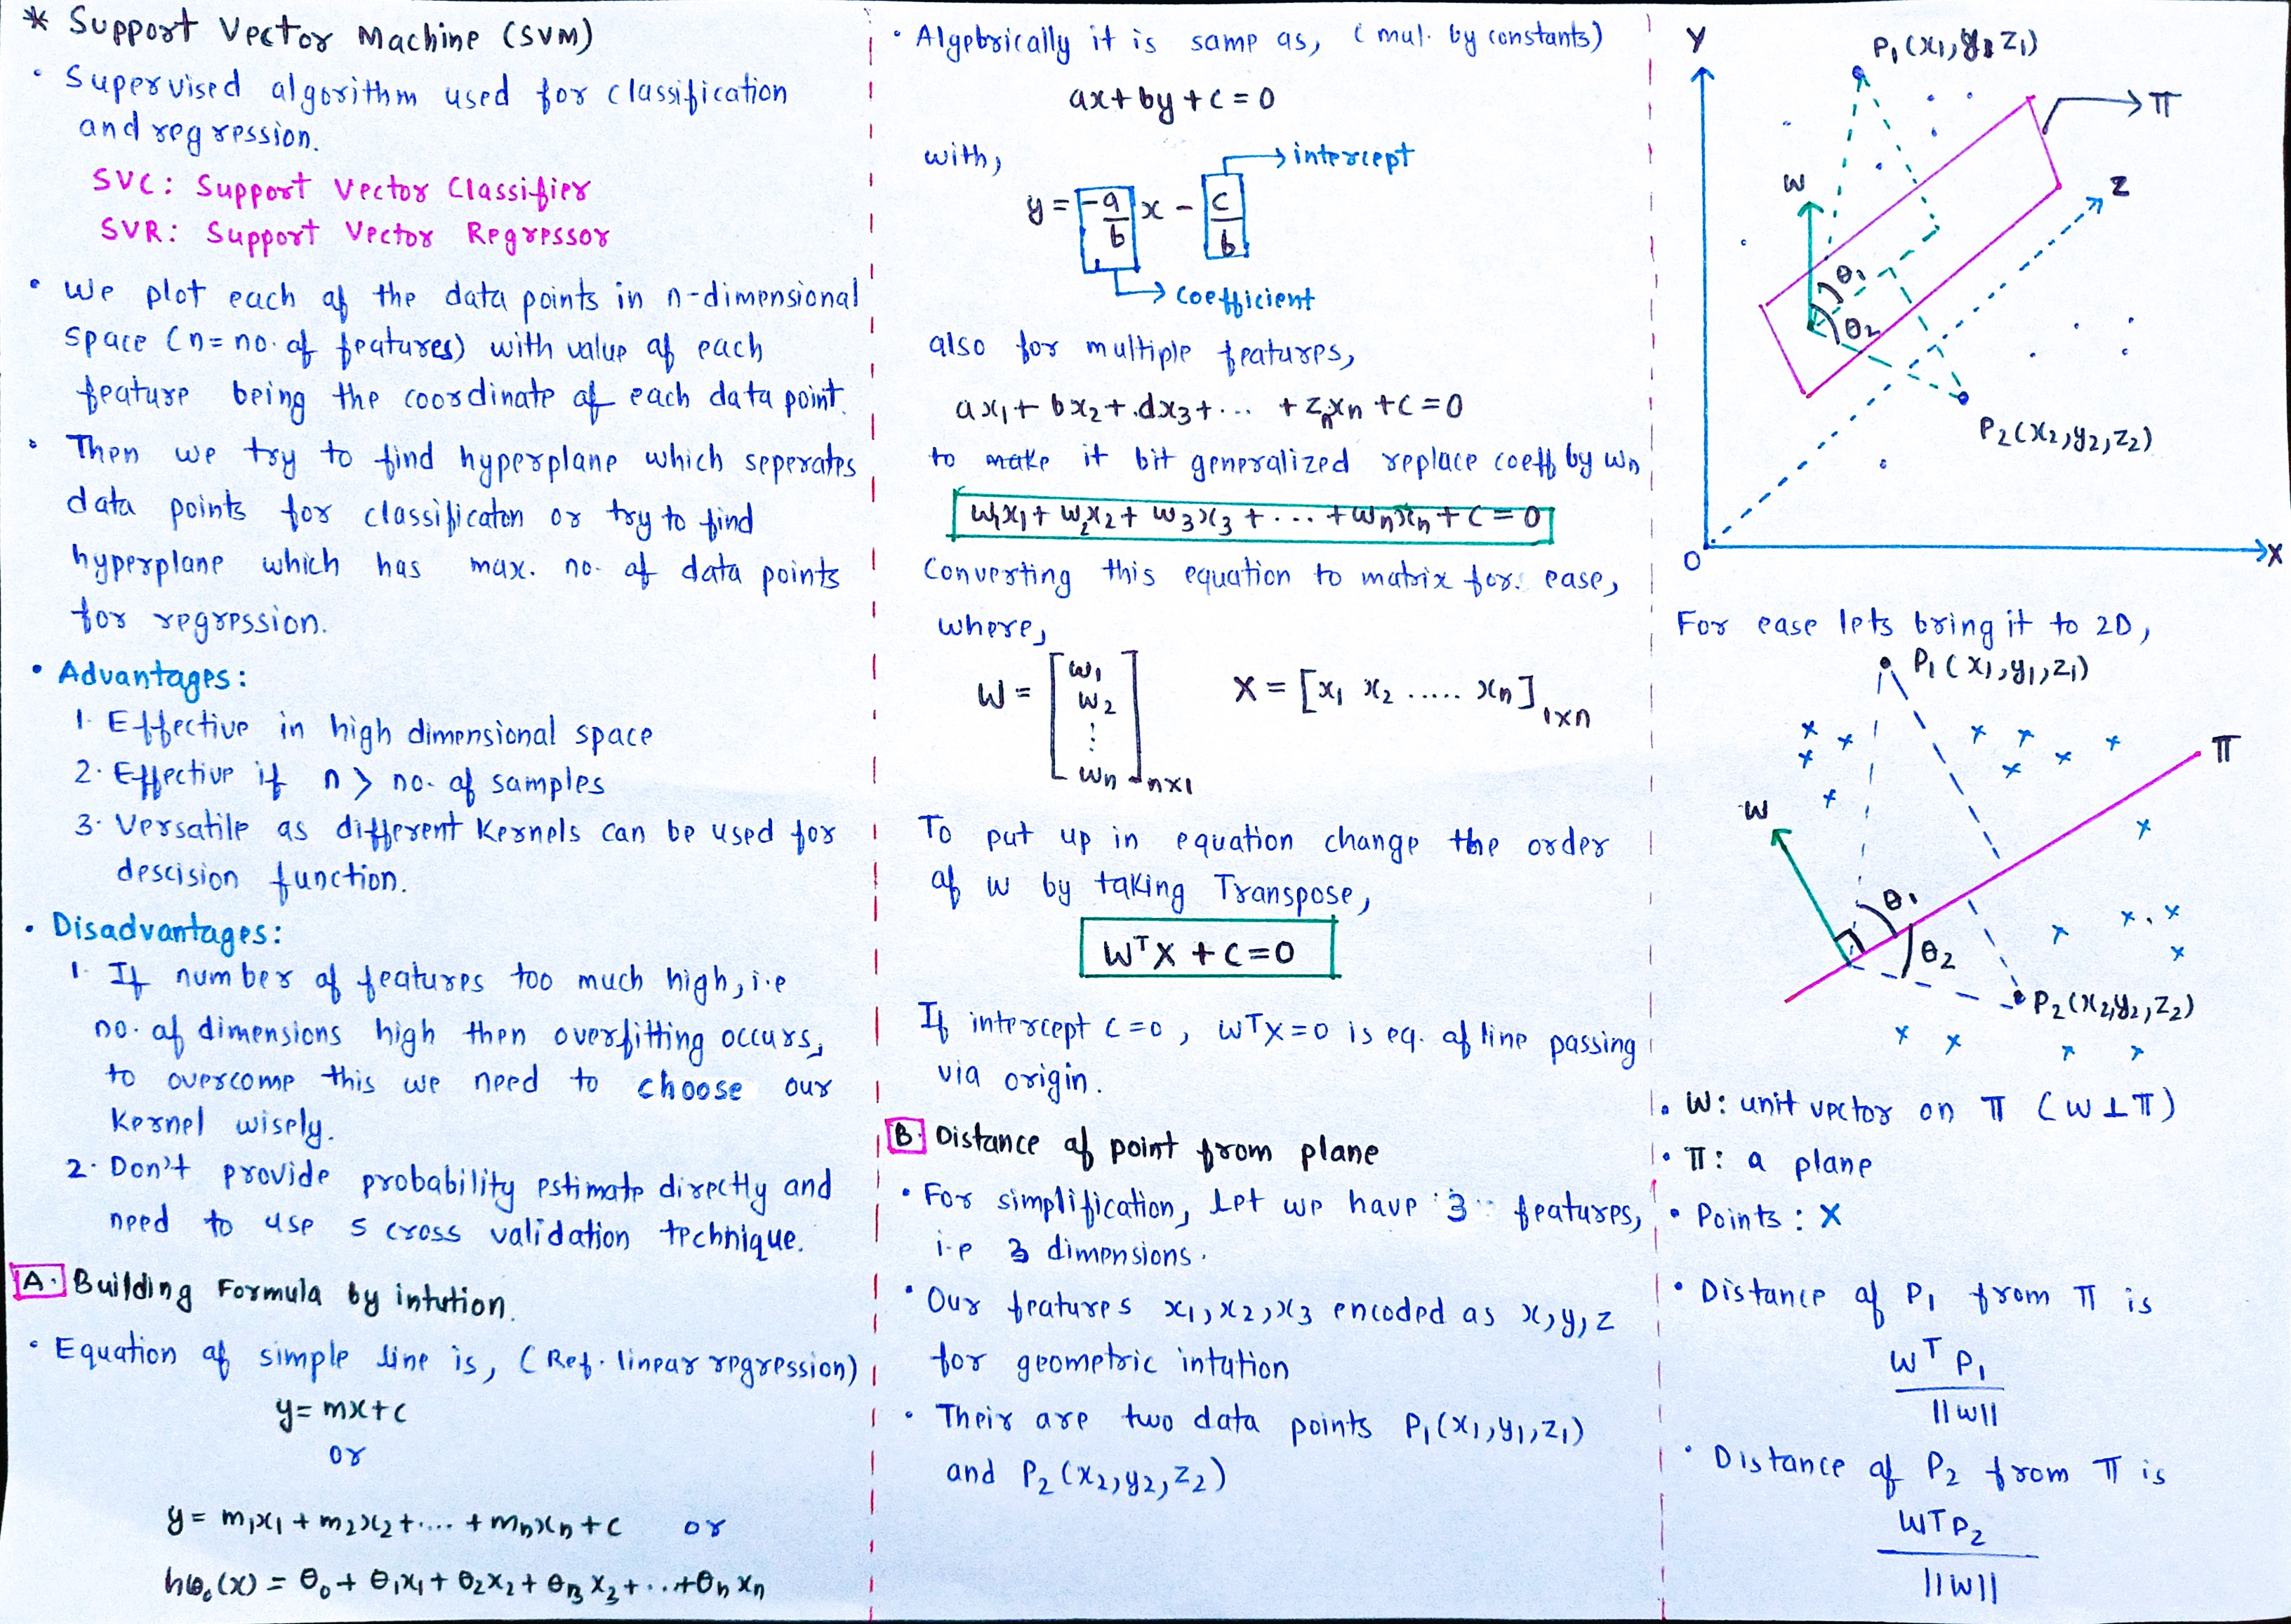 * Support Vector Machine (SVM)
• Supervised algorithm used for classification
and regression.
SVC: Support Vector Classifier
SVR: Support Vector Regressor
• We plot each of the data points in n-dimensional
space (n= no. of features) with value of each
feature being the coordinate of each data point.
• Then we try to find hyperplane which seperates
data points for classificaton or try to find
hyperplane which has max. no. of data points
for regression.
• Advantages:
1. Effective in high dimensional space
2. Effective if n > no. of samples
3. Versatile as different Kernels can be used for
descision function.
• Disadvantages:
1. If number of features too much high, i.e
no. of dimensions high then overfitting occurs,
to overcome this we need to choose our
Kernel wisely.
2. Don't provide probability estimate directly and
need to use 5 cross validation technique.
A. Building Formula by intution.
• Equation of simple line is, (Ref. linear regression)
y = mx+c
or
y = m₁x₁ + m₂x₂ + .... + mₙxₙ + c or
hθ₀(x) = θ₀ + θ₁x₁ + θ₂x₂ + θ₃x₃ + ... + θₙxₙ
• Algebrically it is same as, (mul. by constants)
ax + by + c = 0
with,
intercept
y = -a/b x - c/b
coefficient
also for multiple features,
ax₁ + bx₂ + dx₃ + ... + zₙxₙ + c = 0
to make it bit generalized replace coeff by wₙ
w₁x₁ + w₂x₂ + w₃x₃ + ... + wₙxₙ + c = 0
Converting this equation to matrix for ease,
where,
W = [w₁ w₂ ⋮ wₙ]ₙₓ₁ X = [x₁ x₂ ..... xₙ]₁ₓₙ
To put up in equation change the order
of w by taking Transpose,
Wᵀ X + C = 0
If intercept c=0, wᵀx=0 is eq. of line passing
via origin.
B. Distance of point from plane
• For simplification, let we have 3 features,
i.e 3 dimensions.
• Our features x₁, x₂, x₃ encoded as x, y, z
for geometric intution
• Their are two data points P₁(x₁, y₁, z₁)
and P₂(x₂, y₂, z₂)
Y
P₁(x₁, y₁, z₁)
π
W
Z
θ₁
θ₂
P₂(x₂, y₂, z₂)
O
X
For ease lets bring it to 2D,
P₁(x₁, y₁, z₁)
π
W
θ₁
θ₂
P₂(x₂, y₂, z₂)
• W: unit vector on π (W⊥π)
• π: a plane
• Points: X
• Distance of P₁ from π is
Wᵀ P₁
||W||
• Distance of P₂ from π is
Wᵀ P₂
||W||